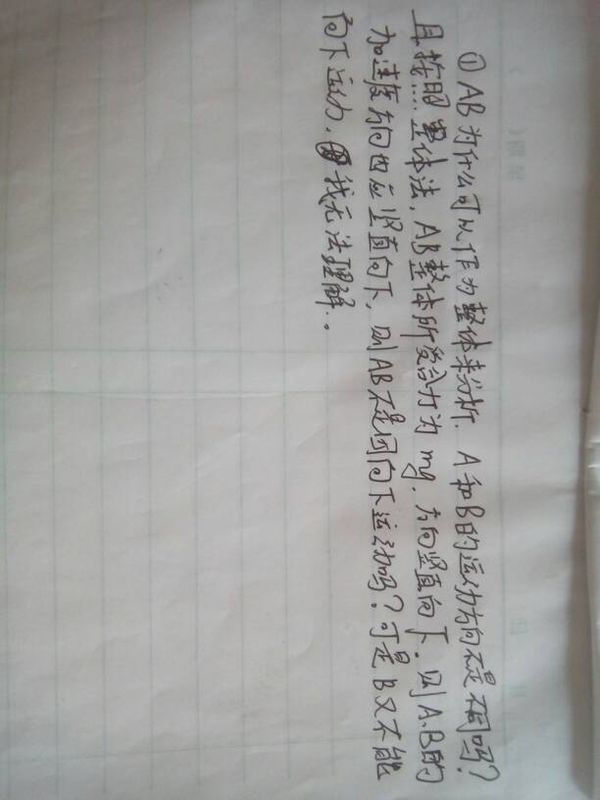 ①AB为什么可以作为整体来分析，A和B的运动方向不是不同吗？
且按照整体法，AB整体所受合力为mg，方向竖直向下。则A、B的
加速度方向也应竖直向下，则AB不是同向下运动吗？可是B又不能
向下运动，我无法理解..。